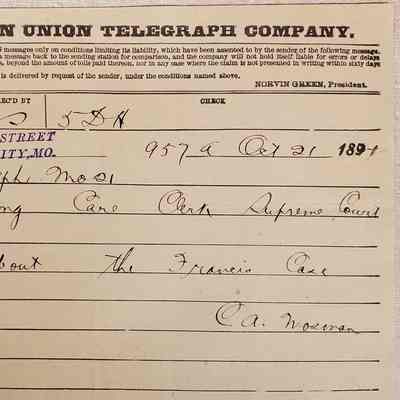 N UNION TELEGRAPH COMPANY.
S messages only on conditions limiting its liability, which have been assented to by the sender of the following message.
a message back to the sending station for comparison, and the company will not hold itself liable for errors or delays
, beyond the amount of tolls paid thereon, nor in any case where the claim is not presented in writing within sixty days
is delivered by request of the sender, under the conditions named above.
NORVIN GREEN, President.
REC'D BY CHECK
5 D H
STREET
ITY, MO.
957 a Oct 21 189
eph Mo 21
ong Care Clerk Supreme Court
bout the Francis Case
C A. Mosman